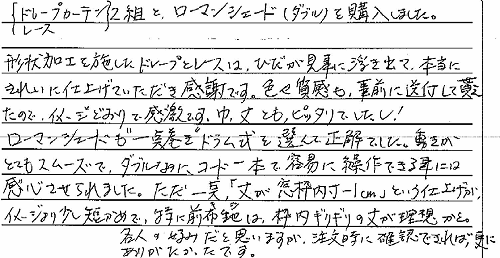 {ドレープカーテン
 レース}2組と、ローマンシェード(ダブル)を購入しました。
形状加工を施したドレープとレースは、ひだが見事に浮き出て、本当に
きれいに仕上げていただき感謝です。色や質感も、事前に送付して貰え
たので、イメージどおりで感激です。巾、丈とも、ピッタリでしたし!
ローマンシェードも一異巻きドラム式を選んで正解でした。動きが
とてもスムーズで、ダブルなのに、コード一本で容易に操作できる事には
感心させられました。ただ一点、「丈が窓枠内寸-1cm」という仕上げが、
イメージより少し短かめで、特に前布地は、枠内ギリギリの丈が理想かと。
各人の好みだと思いますが、注文時に確認できれば更に
ありがたかったです。